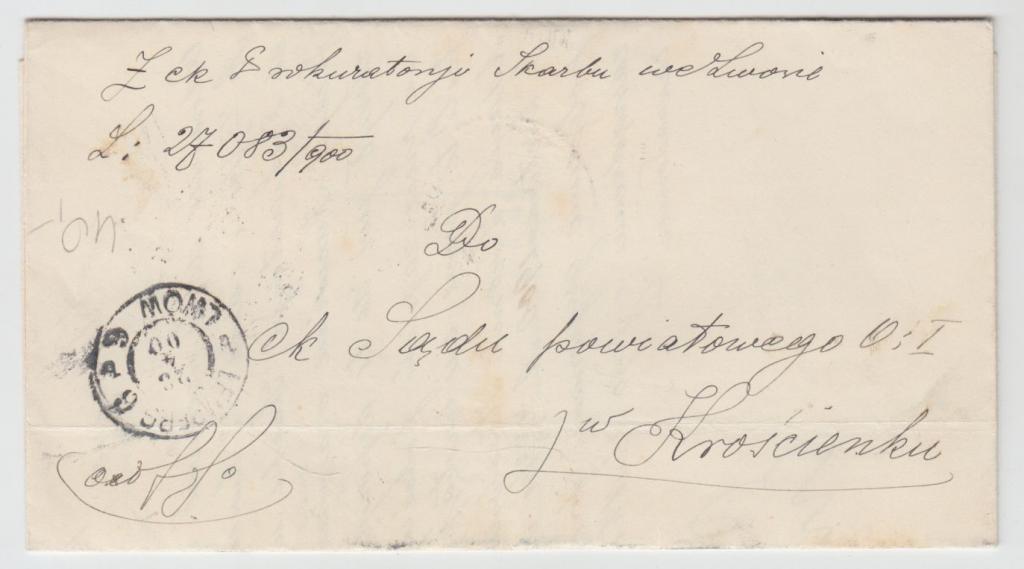 Z ck Prokuratoryi Skarbu we Lwowie
L: 27083/900
Do
ck Sądu powiatowego O: I
w Krościenku
LEMBERG
LWÓW